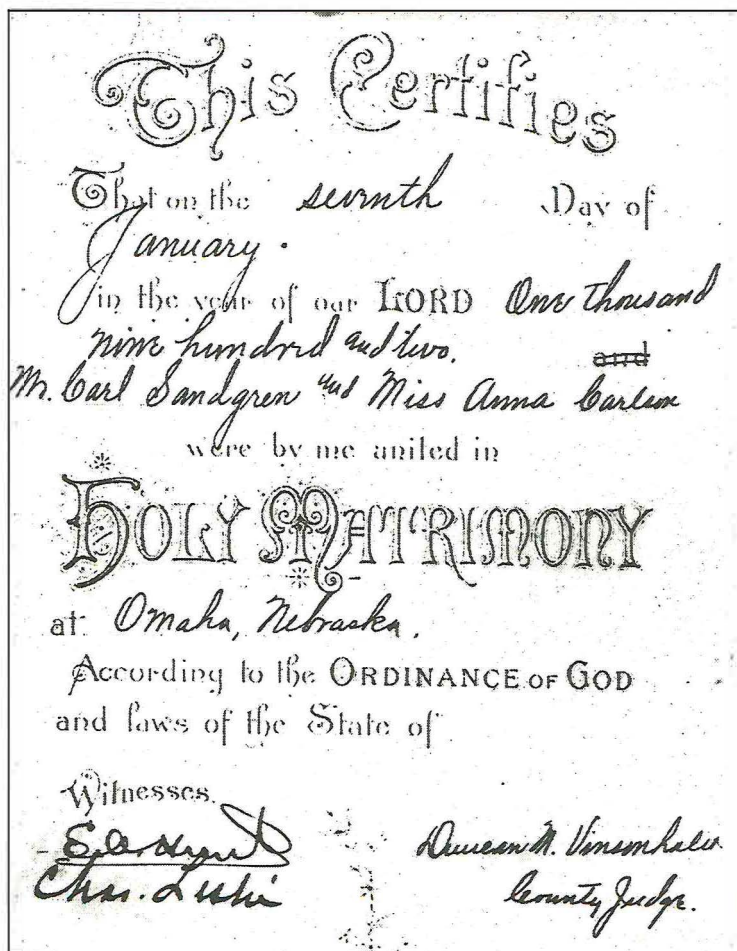 This Certifies
That on the seventh Day of
January.
in the year of our LORD One thousand
nine hundred and two.
and
Mr. Carl Sandgren and Miss Anna Carlson
were by me united in
HOLY MATRIMONY
at Omaha, Nebraska.
According to the ORDINANCE OF GOD
and laws of the State of
Witnesses.
Chas. Leslie
Duncan M. Vinsonhaler
County Judge.